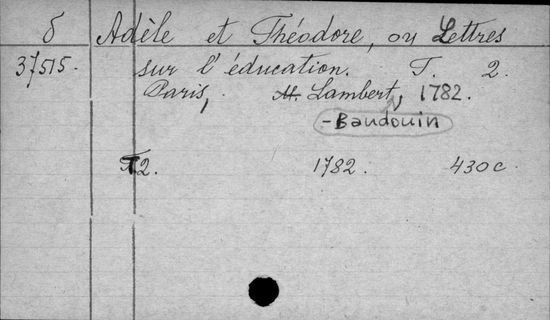 б Adèle et Théodore, ou Lettres
37515. sur l'éducation. T. 2.
Paris, M. Lambert, 1782.
-Baudouin
T2. 1782. 430 c